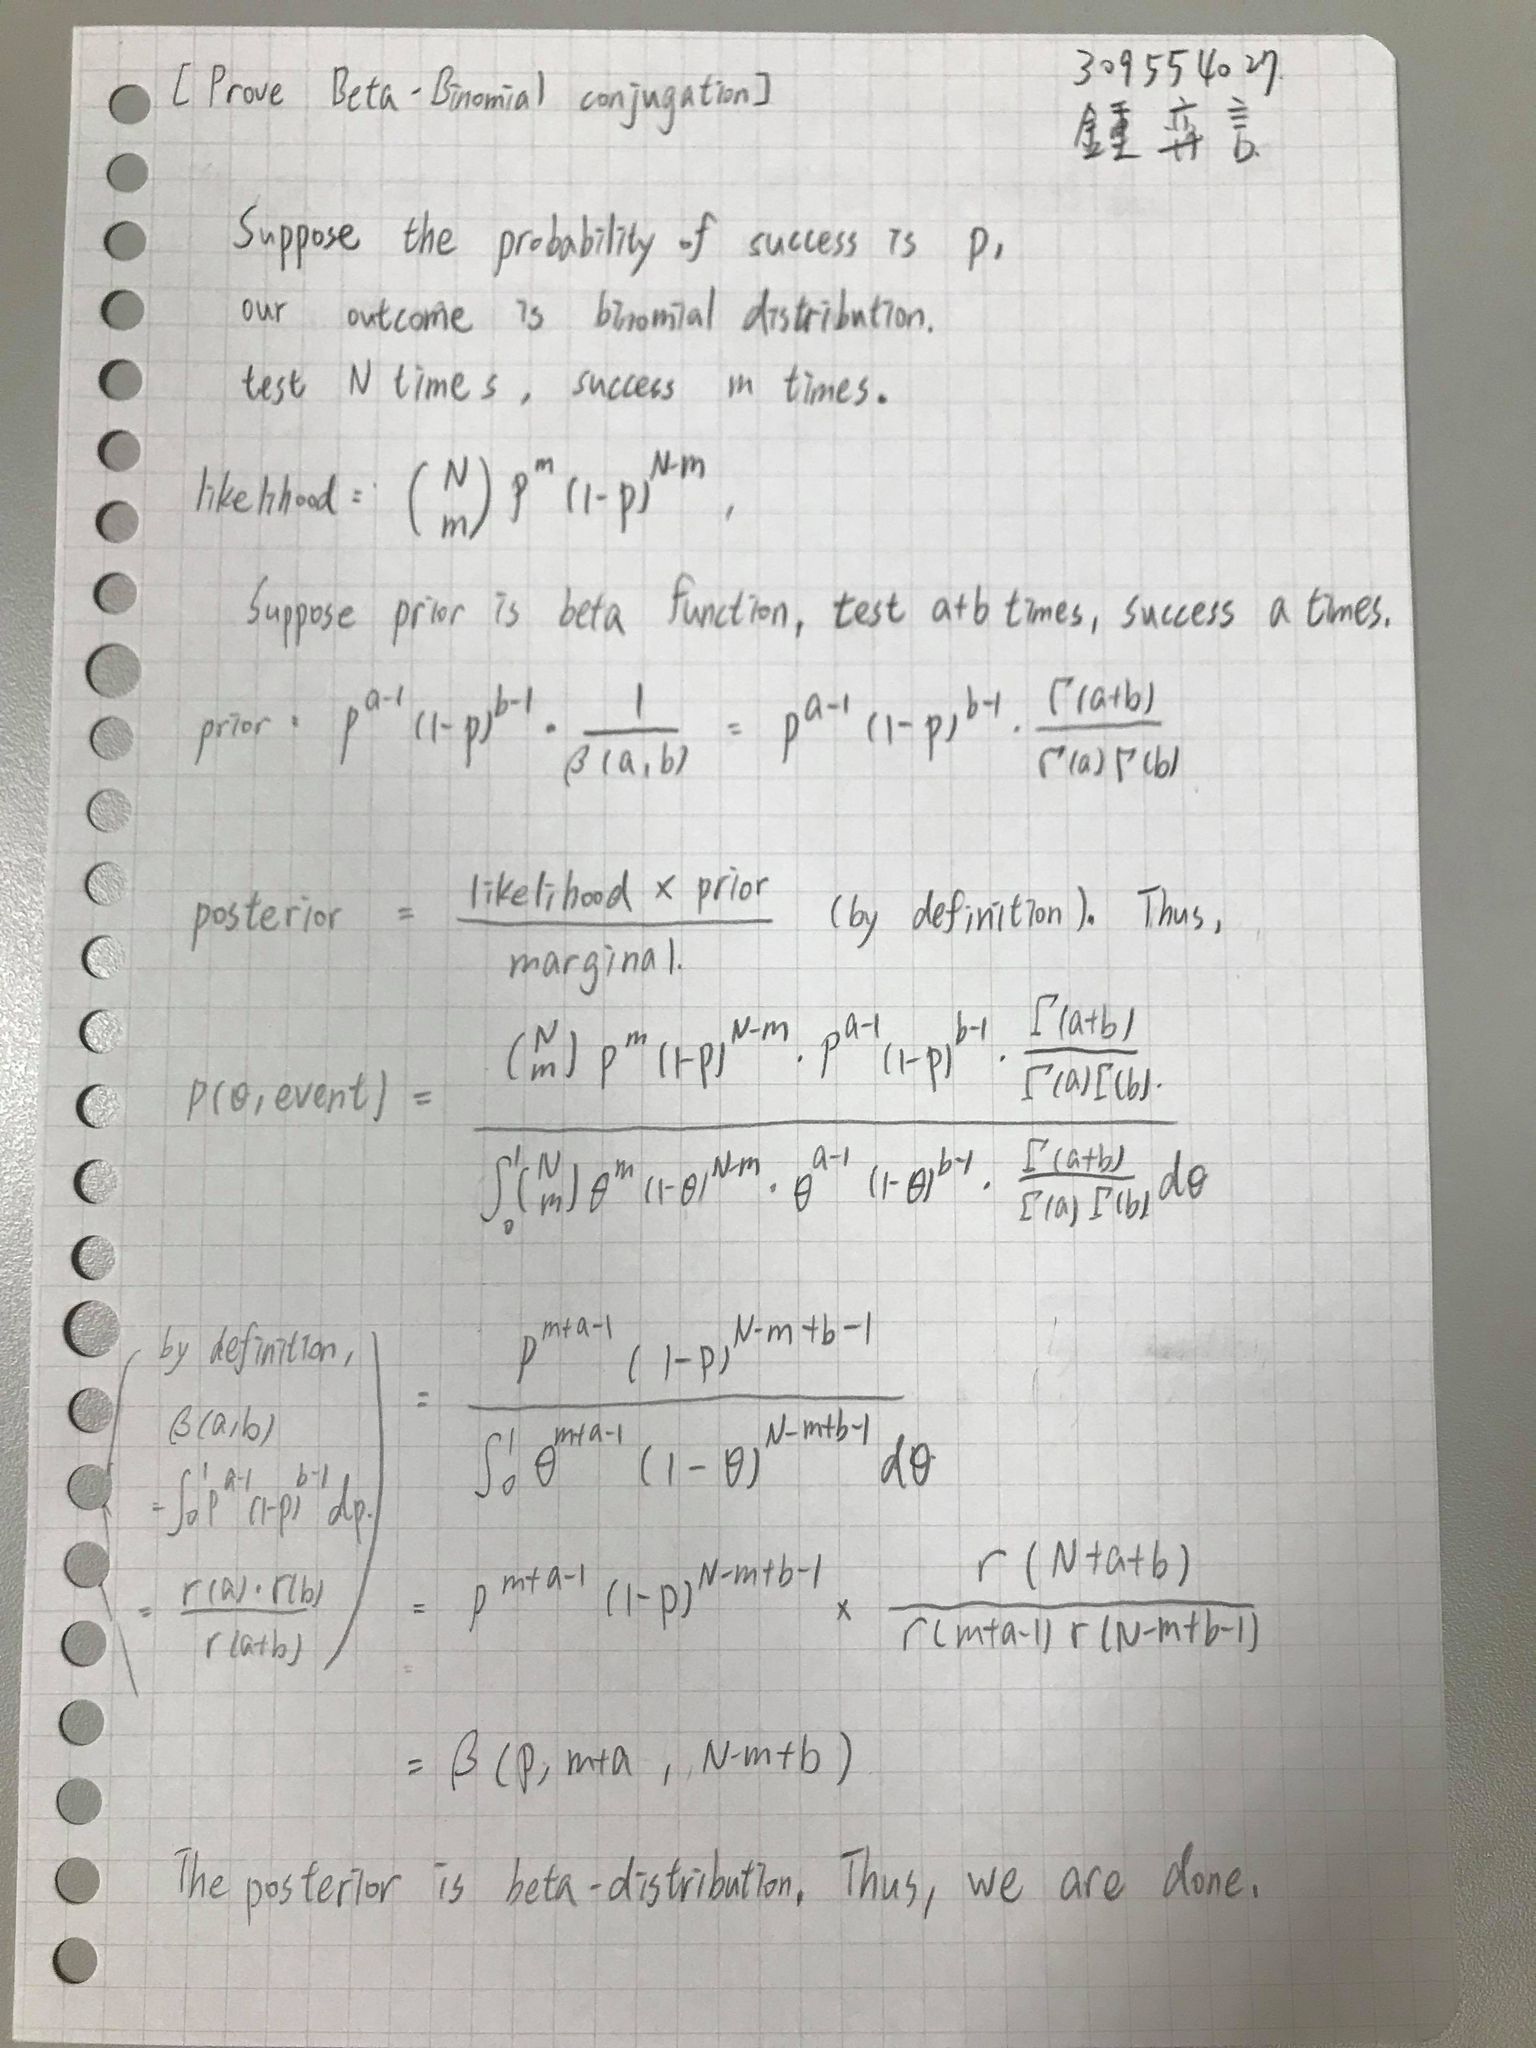 [Prove Beta-Binomial conjugation]
309554027
鍾弈言
Suppose the probability of success is p,
our outcome is binomial distribution.
test N times, success m times.
likelihood = (N m) p^m (1-p)^{N-m},
Suppose prior is beta function, test a+b times, success a times.
prior: p^{a-1} (1-p)^{b-1} · 1/β(a,b) = p^{a-1} (1-p)^{b-1} · Γ(a+b)/Γ(a)Γ(b)
posterior = likelihood × prior / marginal. (by definition). Thus,
P(θ, event) = (N m) p^m (1-p)^{N-m} · p^{a-1} (1-p)^{b-1} · Γ(a+b)/Γ(a)Γ(b). / ∫_0^1 (N m) θ^m (1-θ)^{N-m} · θ^{a-1} (1-θ)^{b-1} · Γ(a+b)/Γ(a)Γ(b) dθ
by definition,
β(a,b)
= ∫_0^1 p^{a-1} (1-p)^{b-1} dp.
= r(a)·r(b)/r(a+b)
= p^{m+a-1} (1-p)^{N-m+b-1} / ∫_0^1 θ^{m+a-1} (1-θ)^{N-m+b-1} dθ
= p^{m+a-1} (1-p)^{N-m+b-1} × r(N+a+b)/r(m+a-1) r(N-m+b-1)
= β(p, m+a, N-m+b)
The posterior is beta-distribution. Thus, we are done.